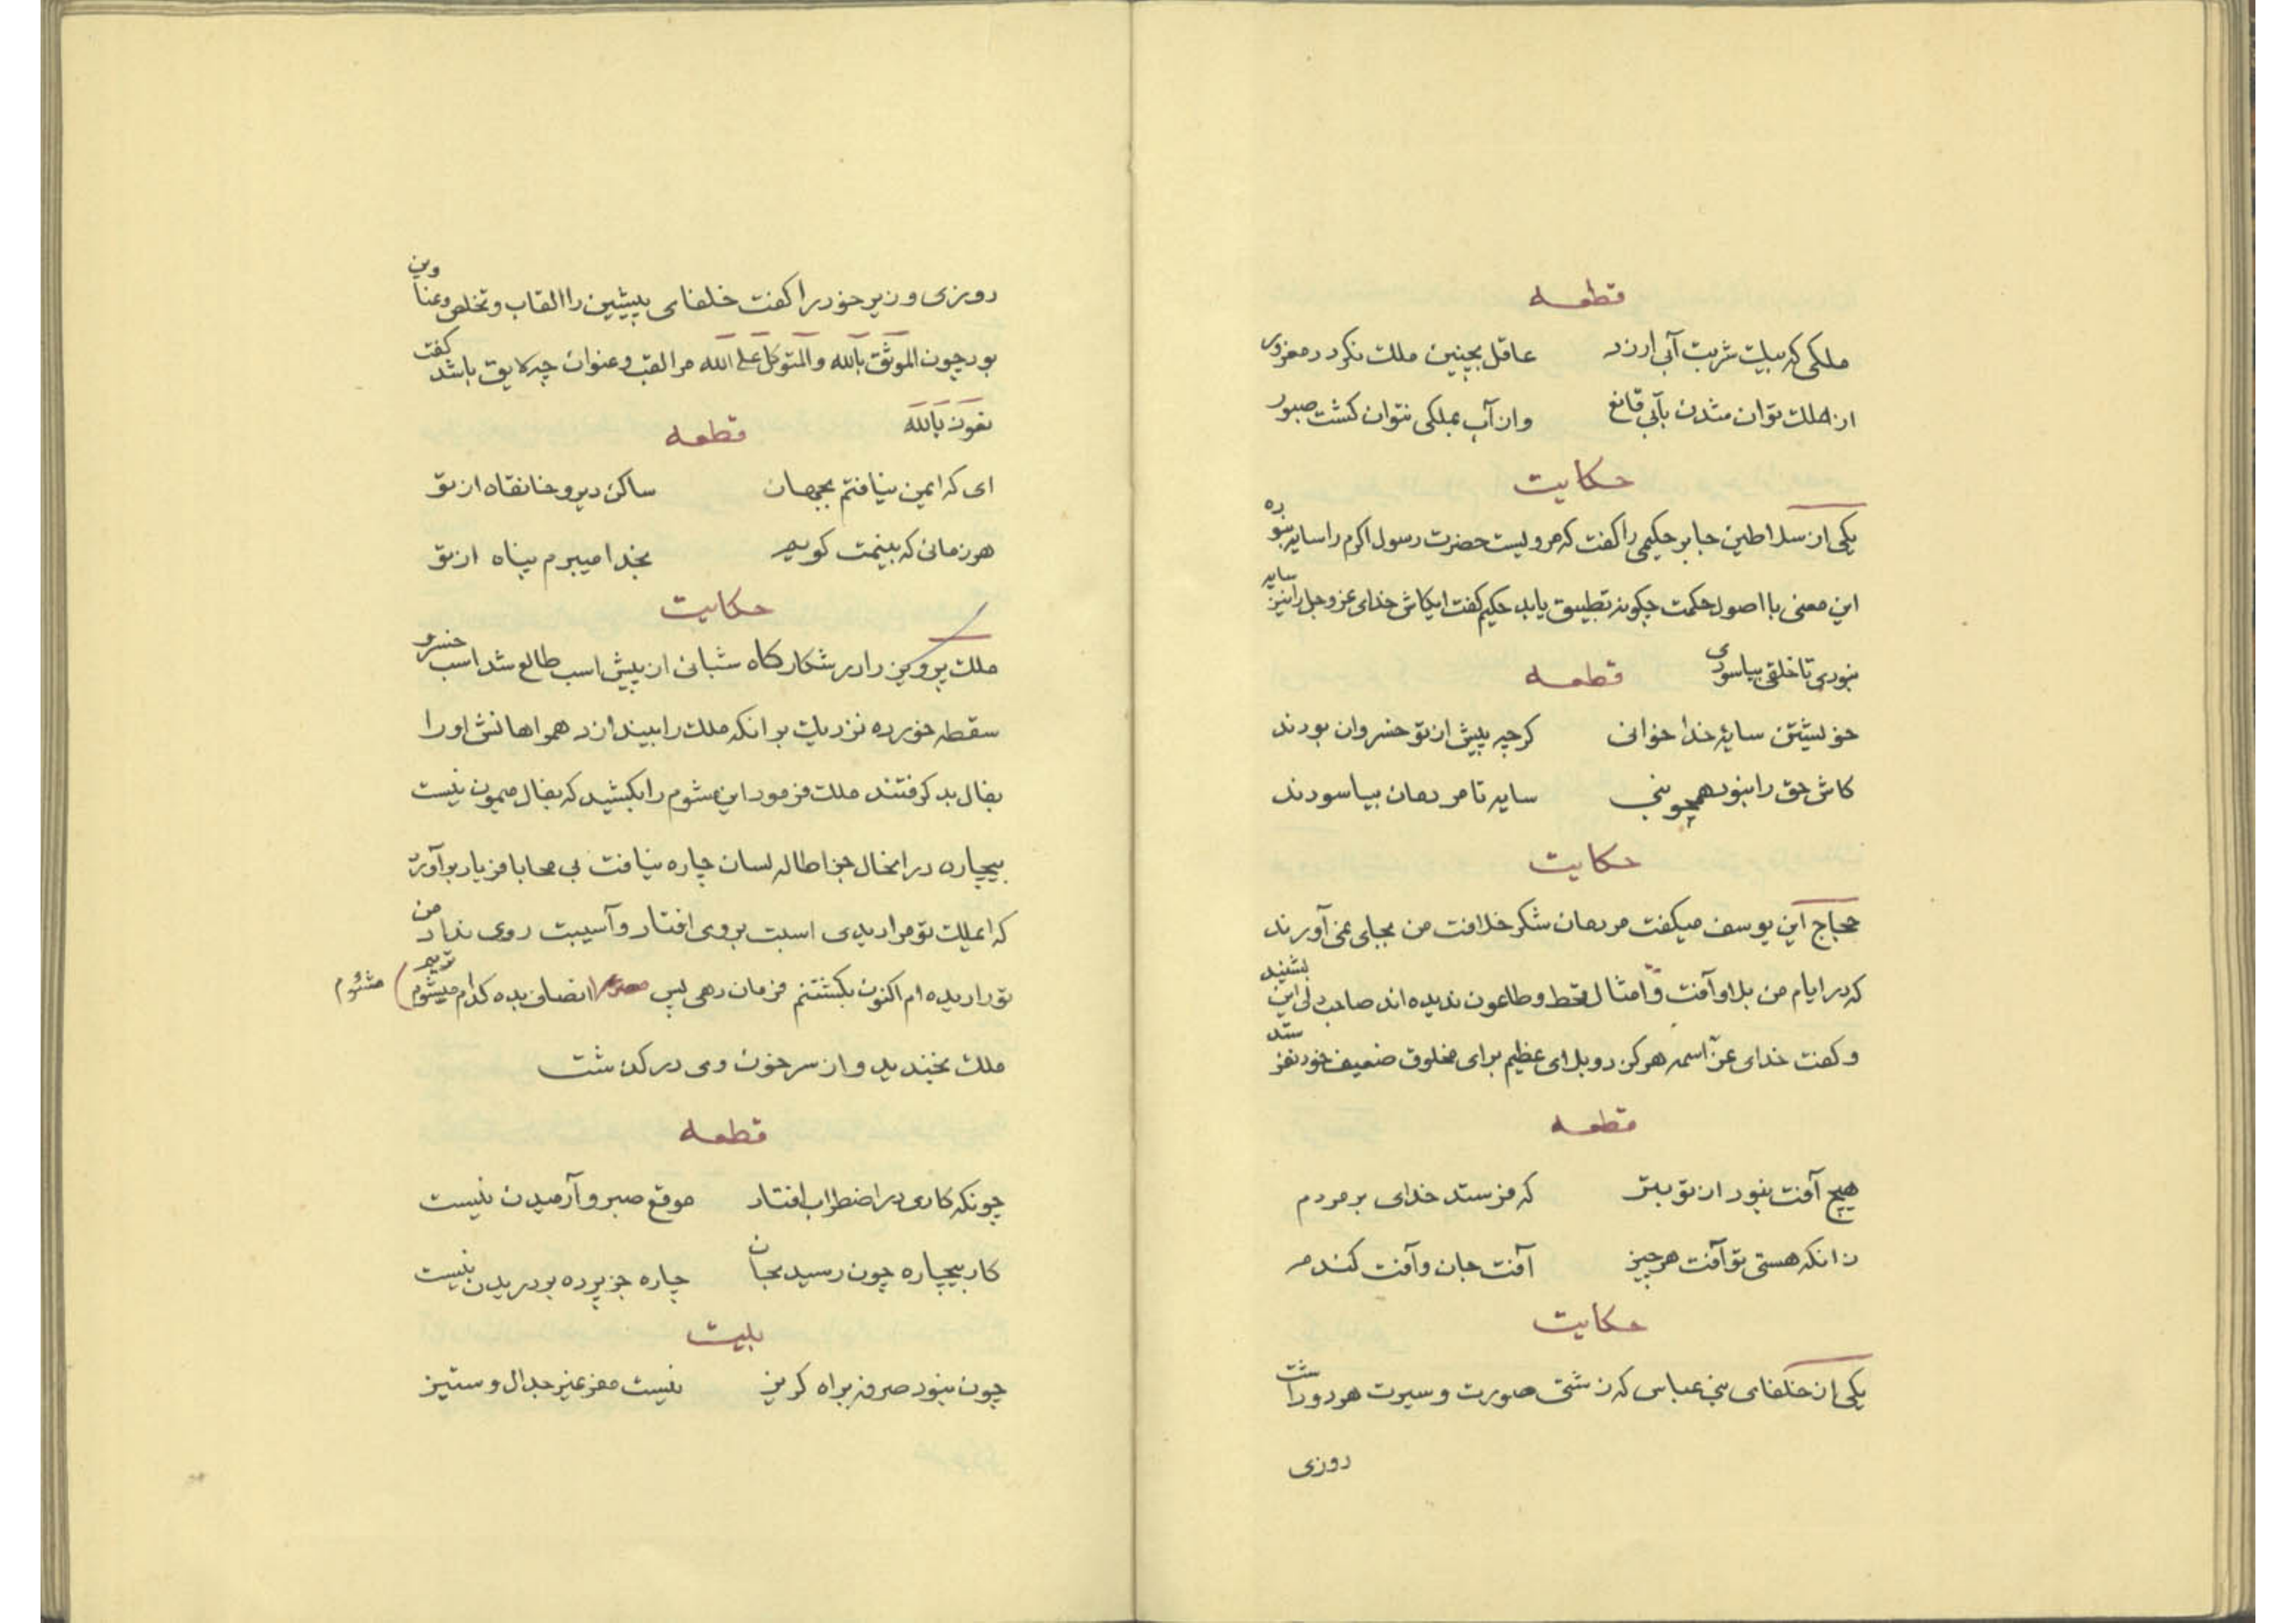 قطعه
ملکی که بیک شربت آبی ارزد عاقل بچنین ملک نگردد مغرور
از ملک توان شدن بآبی قانع وان آب بملکی نتوان کشت صبور
حکایت
یکی از سلاطین جابر حکیمی را کفت که مرویست حضرت رسول اکرم را سایه نبوده
این معنی با اصول حکمت چکونه تطبیق یابد حکیم کفت ایکاش خدای عز وجل را نیز سایه
نبودی تا خلقی بیاسودی
قطعه
خویشتن سایهٔ خدا خوانی کرچه پیش از تو خسروان بودند
کاش حق را نبود همچو نبی سایه تا مردمان بیاسودند
حکایت
حجاج ابن یوسف میکفت مردمان شکر خلافت من بجای نمی آورند
که در ایام من بلا و آفت و امثال قحط و طاعون ندیده اند صاحب دلی این بشنید
و کفت خدای عزّ اسمه هرکز دو بلای عظیم برای مخلوق ضعیف خود نفرستد
قطعه
هیچ آفت نبود از تو بتر که فرستد خدای بر مردم
زانکه هستی تو آفت هر چیز آفت جان و آفت کندم
حکایت
یکی از خلفای بنی عباس که زشتی صورت و سیرت هر دو داشت
روزی
روزی وزیر خود را کفت خلفای پیشین را القاب و تخلص و عناوین
بود چون الموثق بالله والمتوکل علی الله مرا لقب و عنوان چه لایق باشد کفت
نعوذ بالله
قطعه
ای که ایمن نیافتم بجهان ساکن دیر و خانقاه از تو
هر زمانی که بینمت کویم بخدا میبرم پناه از تو
حکایت
ملک پرویز را در شکارکاه شبانی از پیش اسب طالع شد اسب خسرو
سقطه خورده نزدیک بر انکه ملک را بیندازد همراهانش او را
بفال بد کرفتند ملک فرمود این مشوم را بکشید که بفال میمون نیست
بیچاره در انحال جز اطاله لسان چاره نیافت بی محابا فریاد برآورد
که ایملک تو مرا دیدی اسبت بروی افتاد و آسیبت روی نداد من
تو را دیده ام اکنون بکشتنم فرمان دهی پس مصرع انصاف بده کدام میشوم تریم ) مشئوم
ملک بخندید و از سر خون وی درکذشت
قطعه
چونکه کاری در اضطراب افتاد موقع صبر و آرمیدن نیست
کار بیچاره چون رسید بجان چاره جز پرده بر دریدن نیست
بیت
چون نبود صرفه براه کریز نیست مفر غیر جدال و ستیز